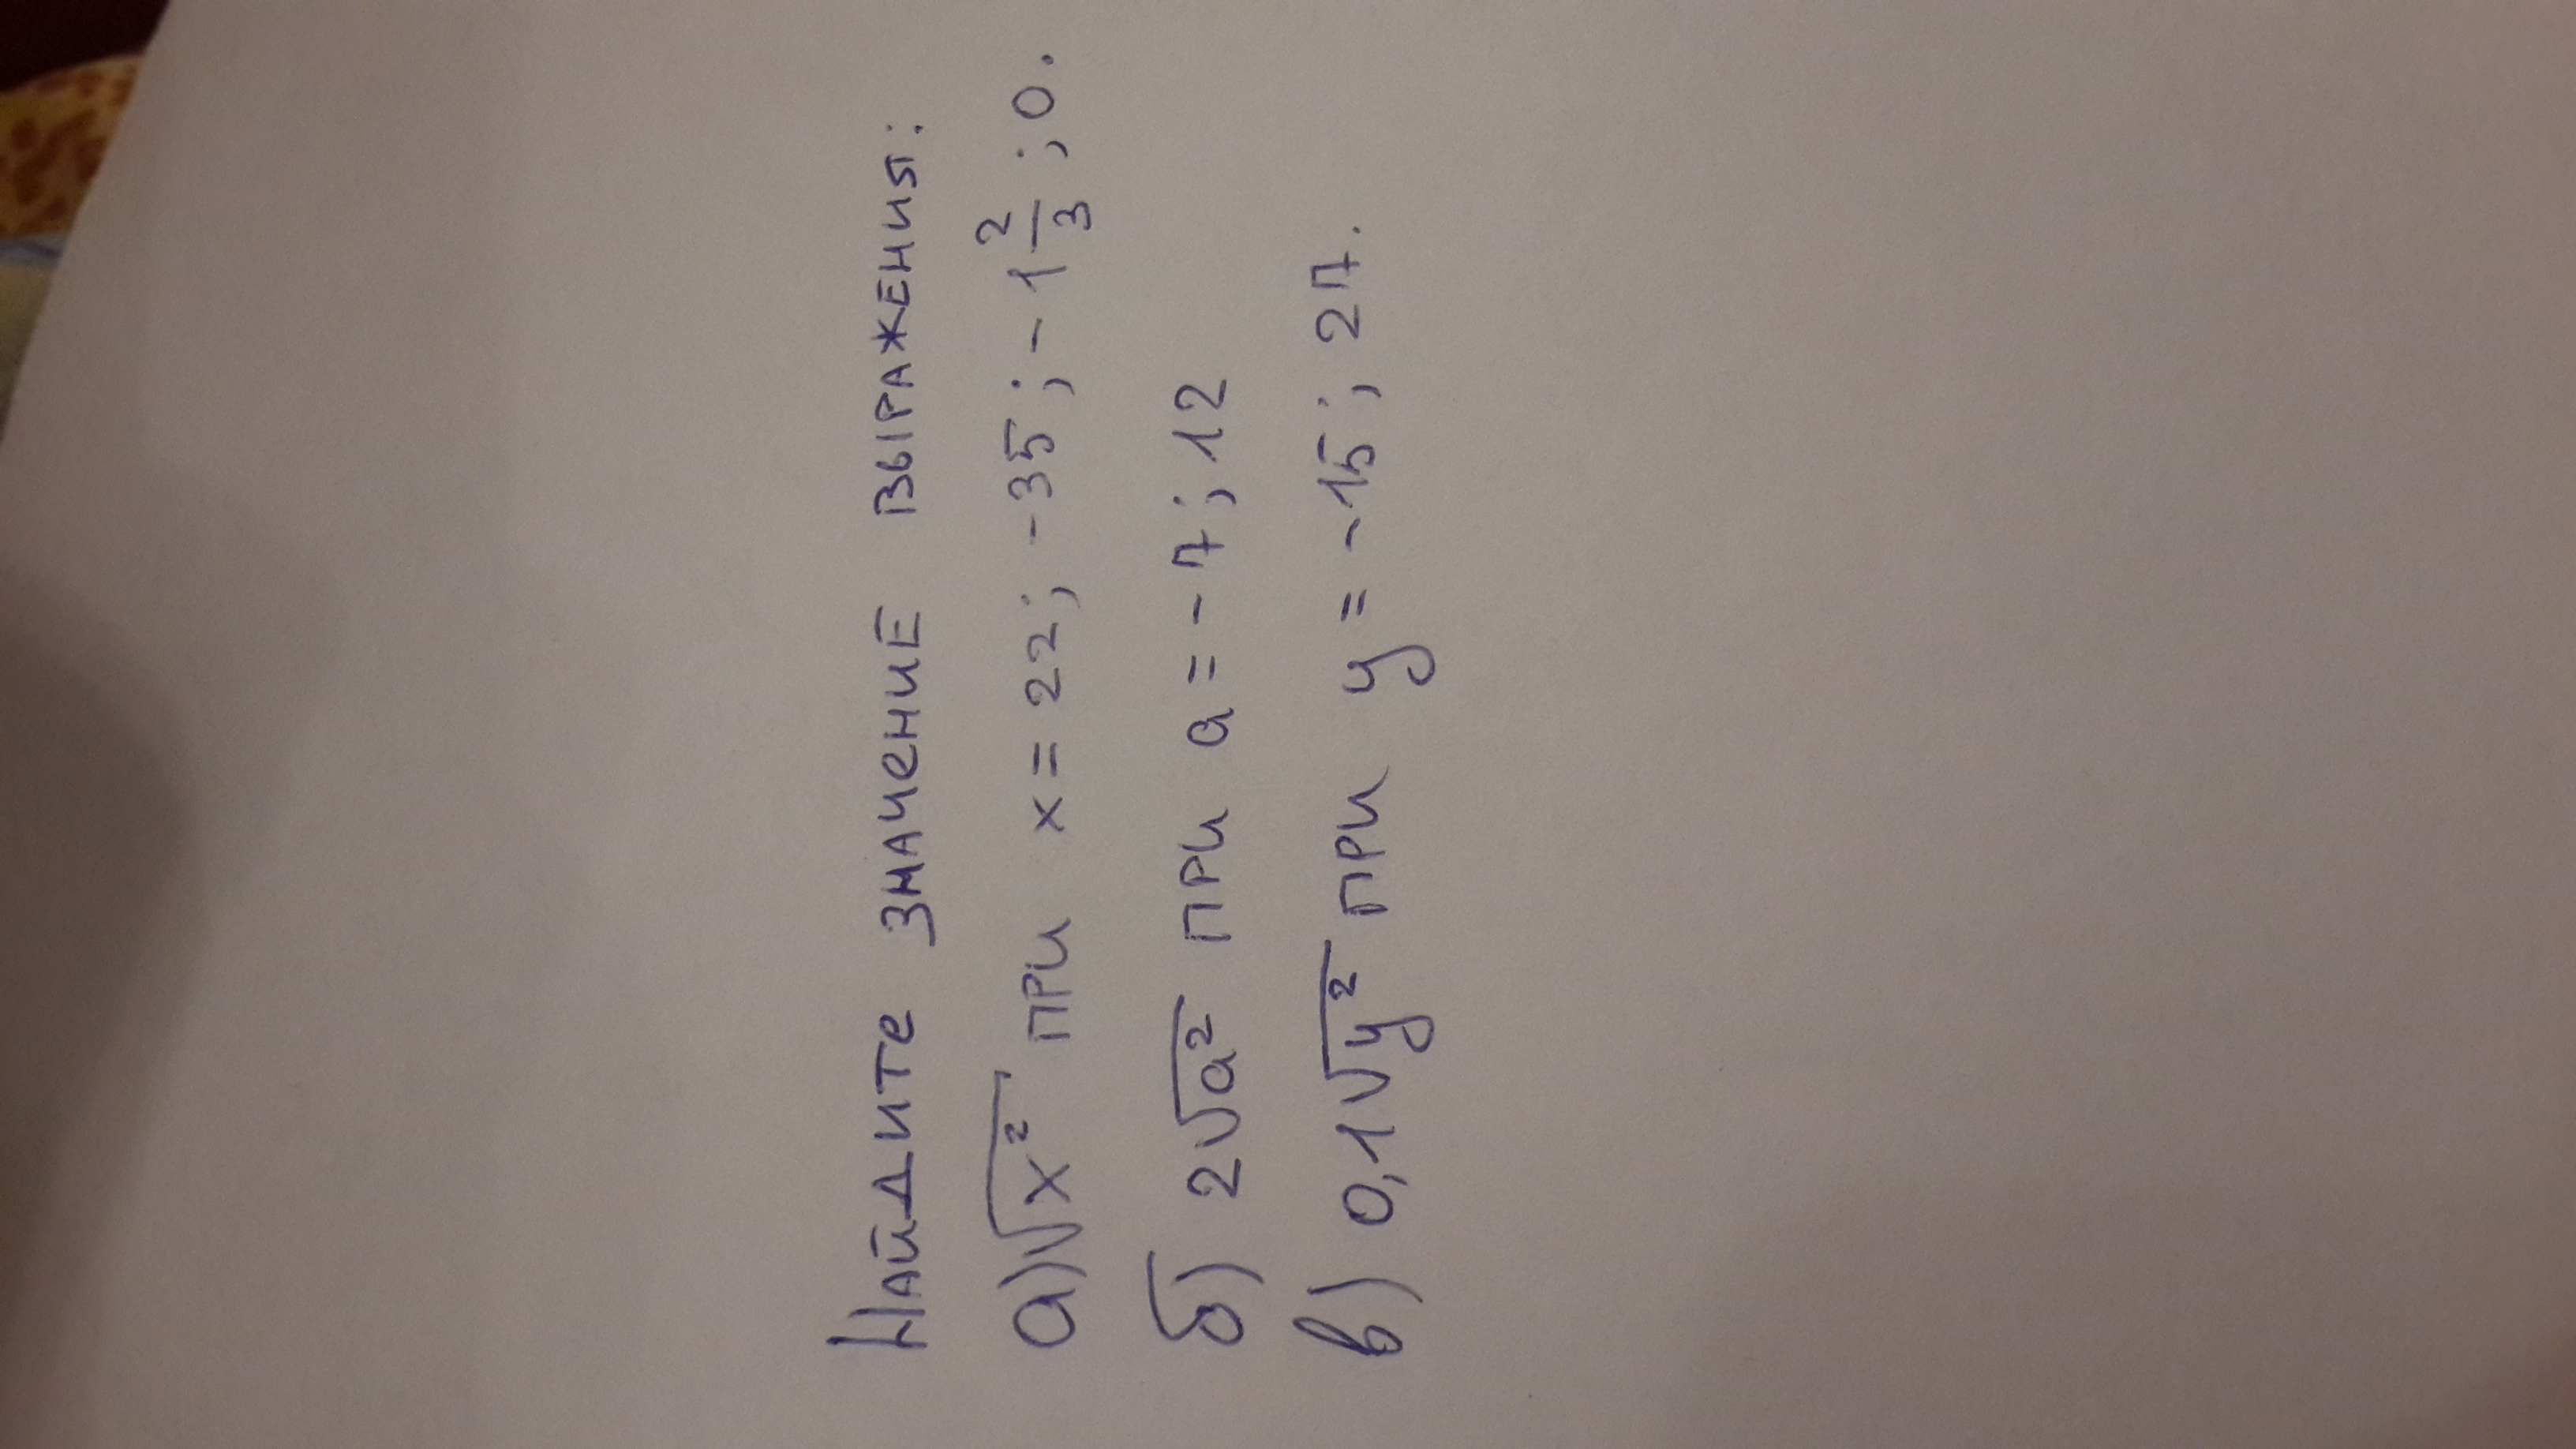 Найдите значение выражения:
а) √x² при x = 22; -35; -1 2/3; 0.
б) 2√a² при a = -7; 12
в) 0,1√y² при y = -15; 27.